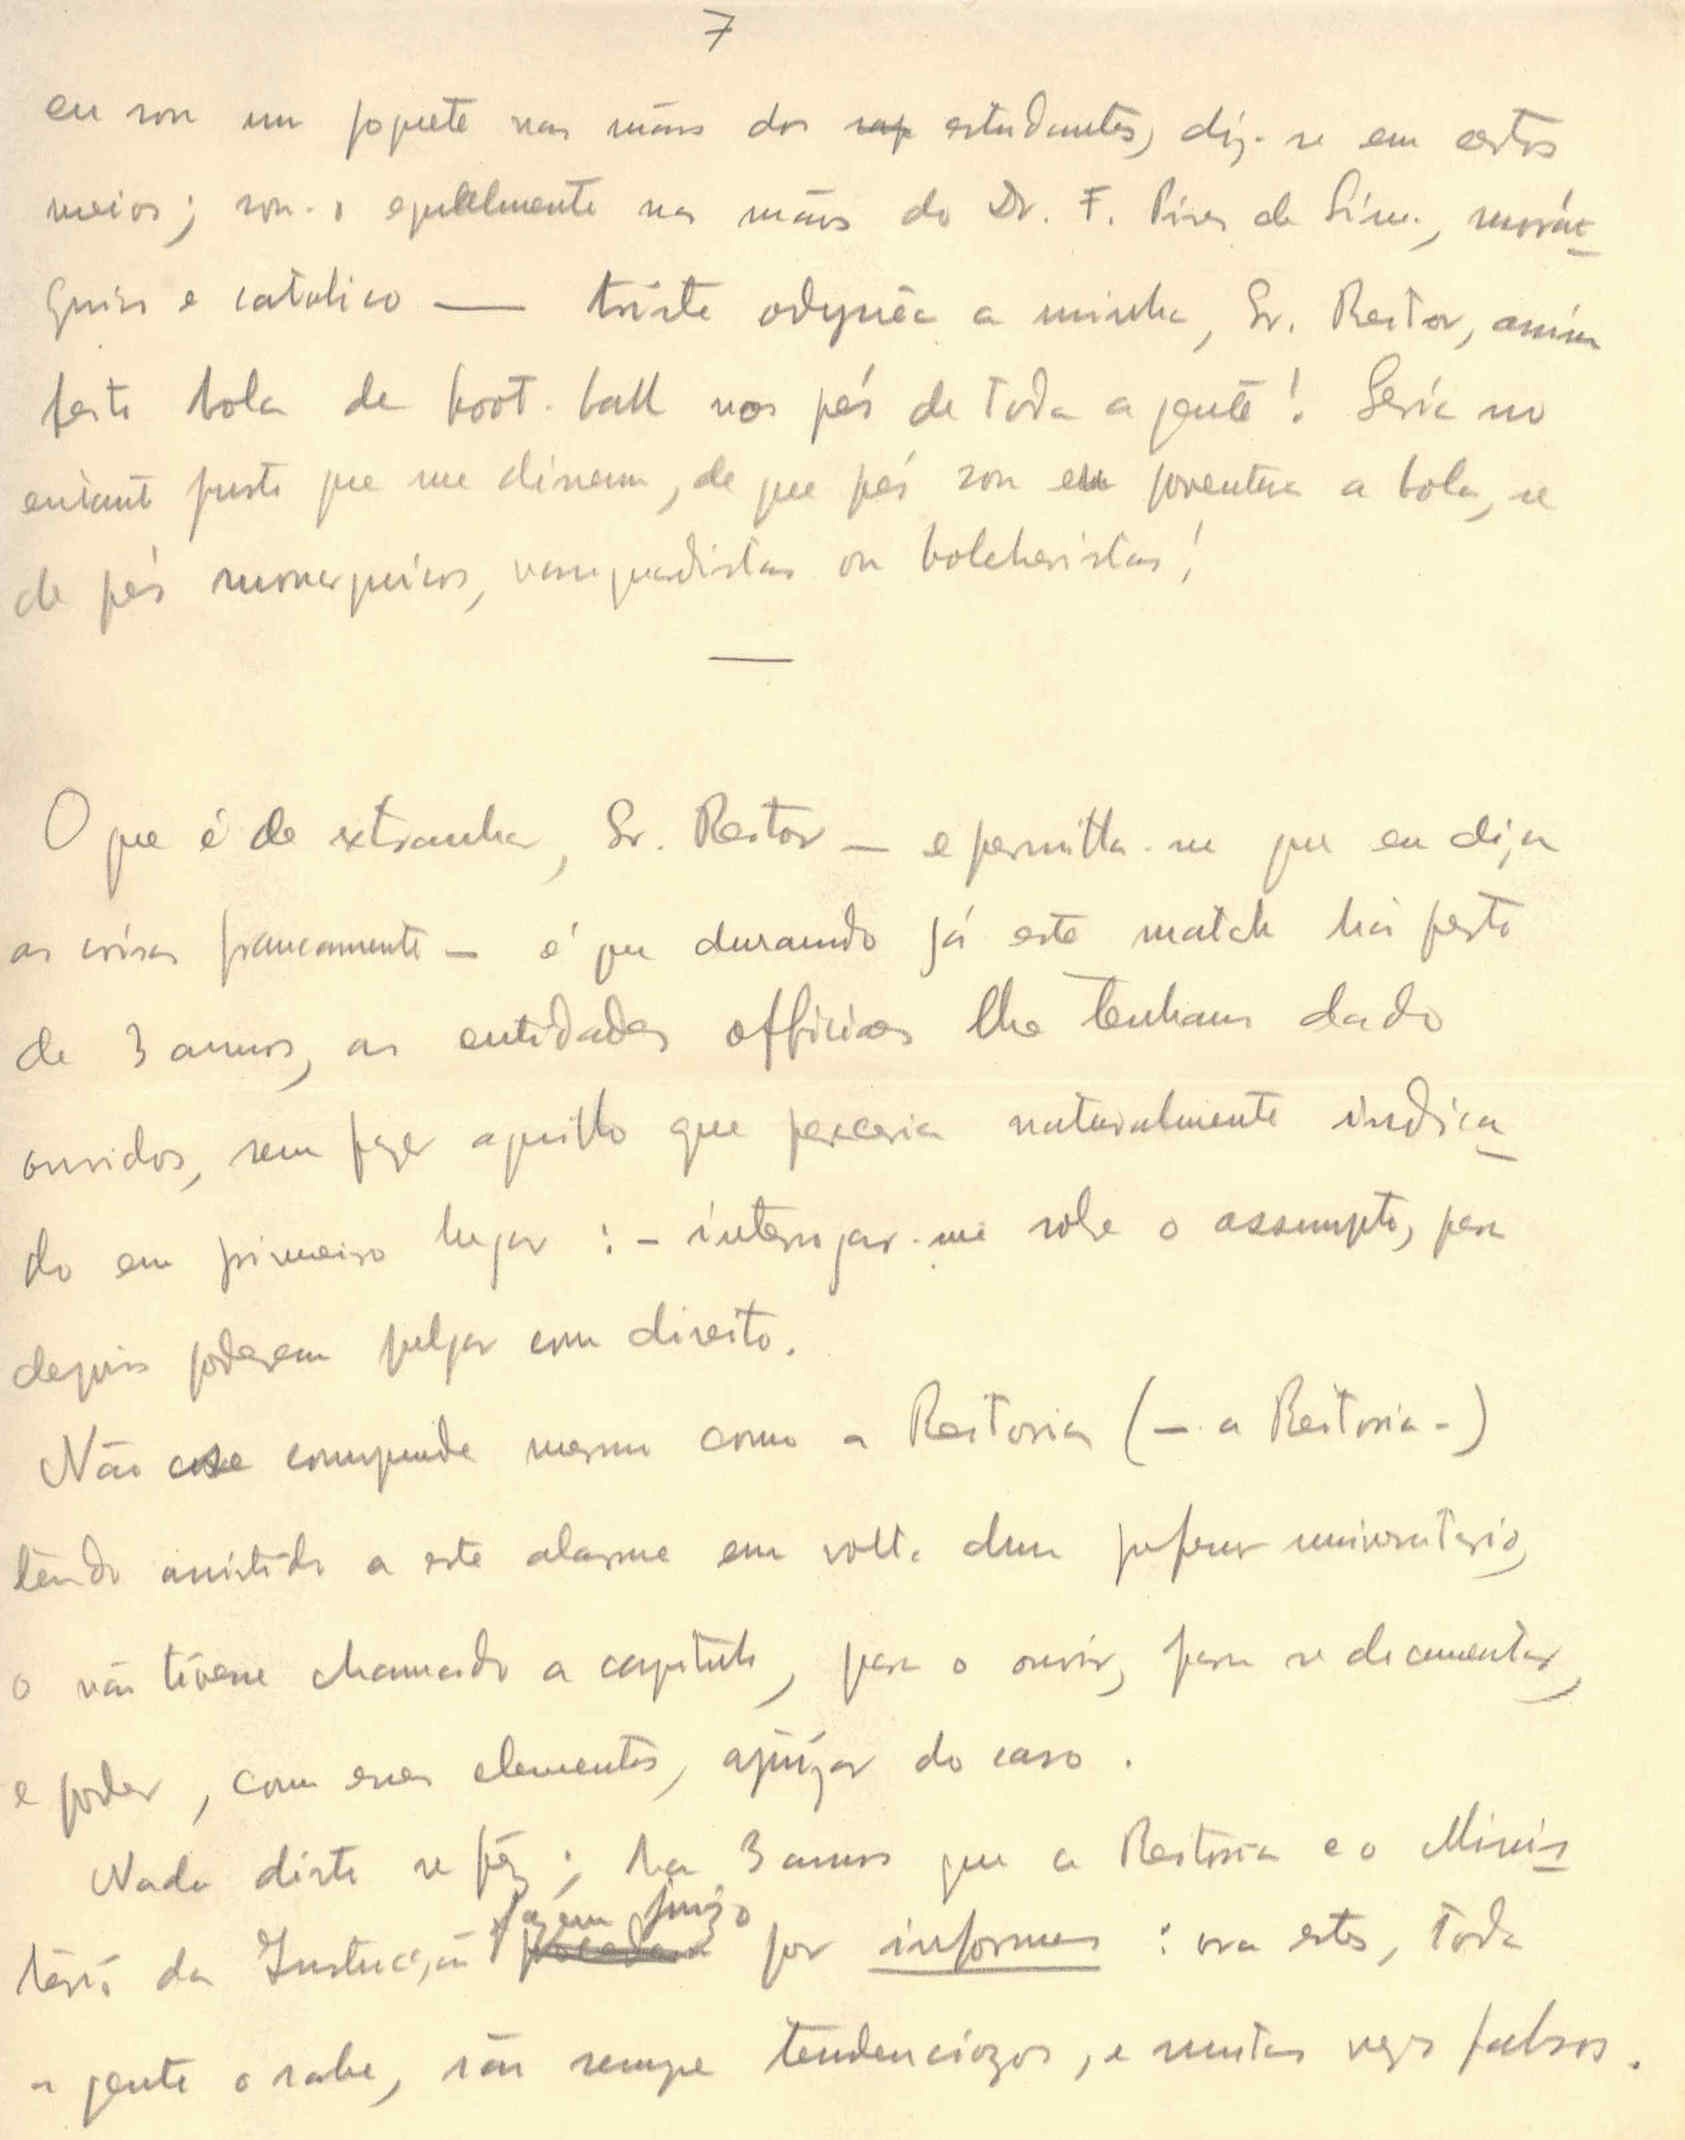 7
eu sou um joguete nas mãos dos estudantes, diz-se em certos
meios; sou-o egualmente nas mãos do Dr. F. Pires de Lima, monár-
quico e catolico — triste odyssêa a minha, Sr. Reitor, assim
feito bola de foot-ball nos pés de toda a gente! Seria no
entanto justo que me dissessem, de que pés sou eu joventura a bola, se
de pés monarquicos, vanguardistas ou bolchevistas!
—
O que é de extranhar, Sr. Reitor — e permitta-me que eu diga
as coisas francamente — é que durando já este match há perto
de 3 annos, as entidades officiaes lhe tenham dado
ouvidos, sem fazer aquillo que pareceria naturalmente indica-
do em primeiro lugar: — interrogar-me sobre o assumpto, para
depois poderem julgar com direito.
Não se comprende mesmo como a Reitoria (— a Reitoria —)
tendo assistido a este alarme em volta dum professor universitario,
o não tivesse chamado a capitulo, para o ouvir, para se documentar,
e poder, com esses elementos, ajuizar do caso.
Nada disto se fêz; ha 3 annos que a Reitoria e o Minis-
terio da Instrucção fazem juizo por informes: ora estes, toda
a gente o sabe, são sempre tendenciozos, e muitas vezes falsos.